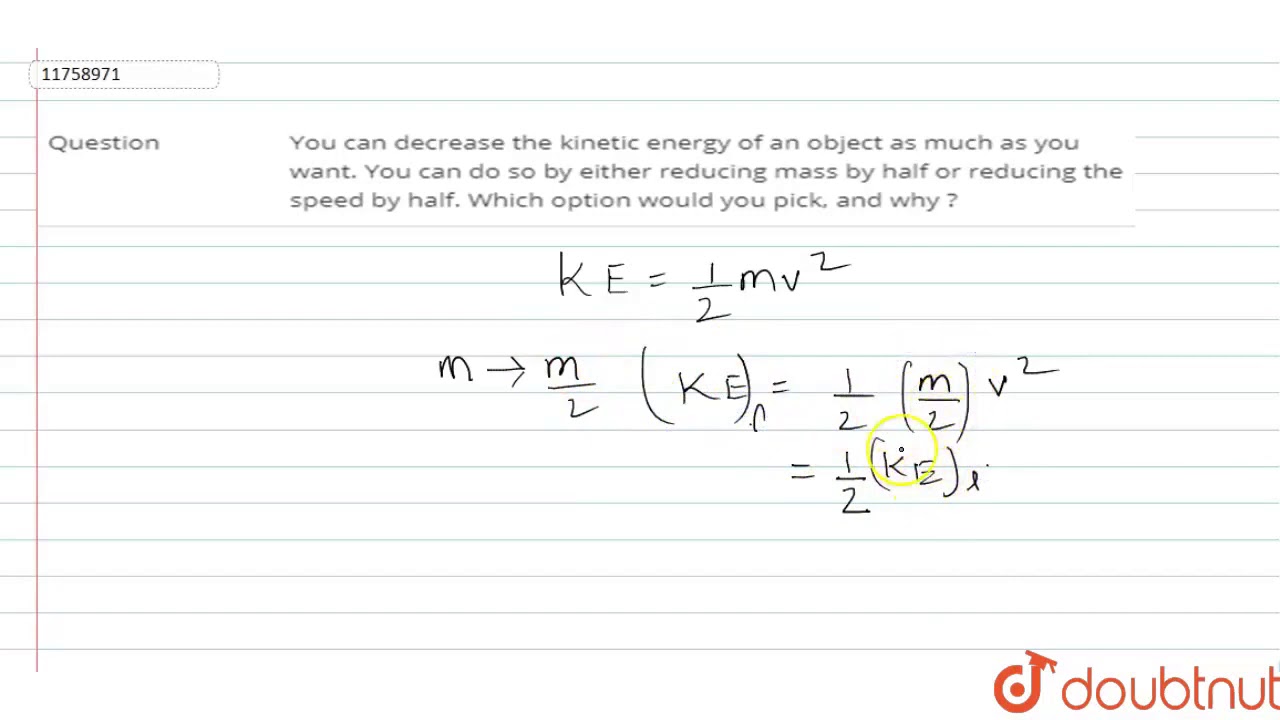 11758971
Question You can decrease the kinetic energy of an object as much as you
want. You can do so by either reducing mass by half or reducing the
speed by half. Which option would you pick, and why ?
KE = 1/2 mv²
m → m/2 (KE)f = 1/2 (m/2) v²
= 1/2 (KE)i
doubtnut